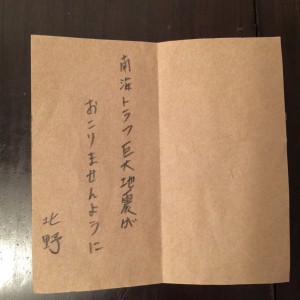 南海トラフ巨大地震が
おこりませんように
北野